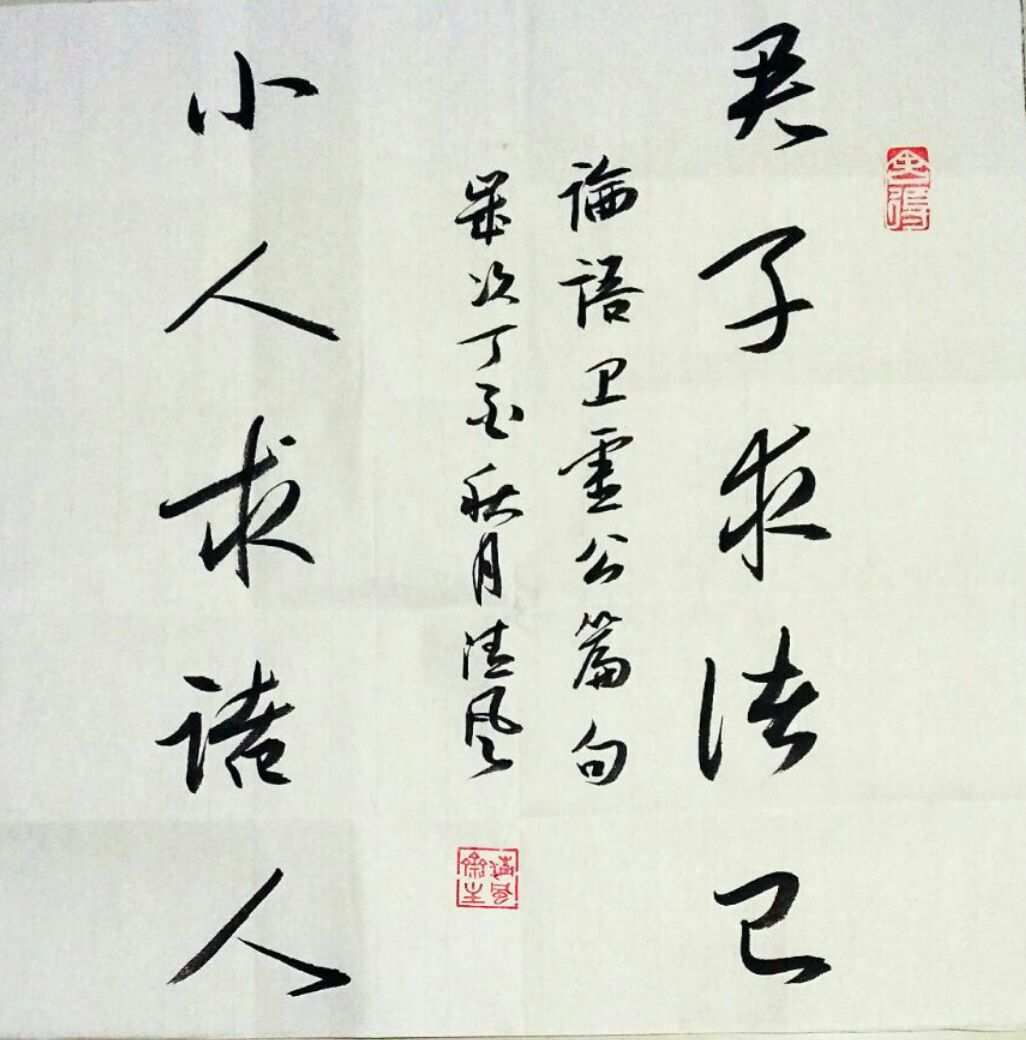 君子求诸己
論語卫灵公篇句
歲次丁酉秋月清风
小人求諸人